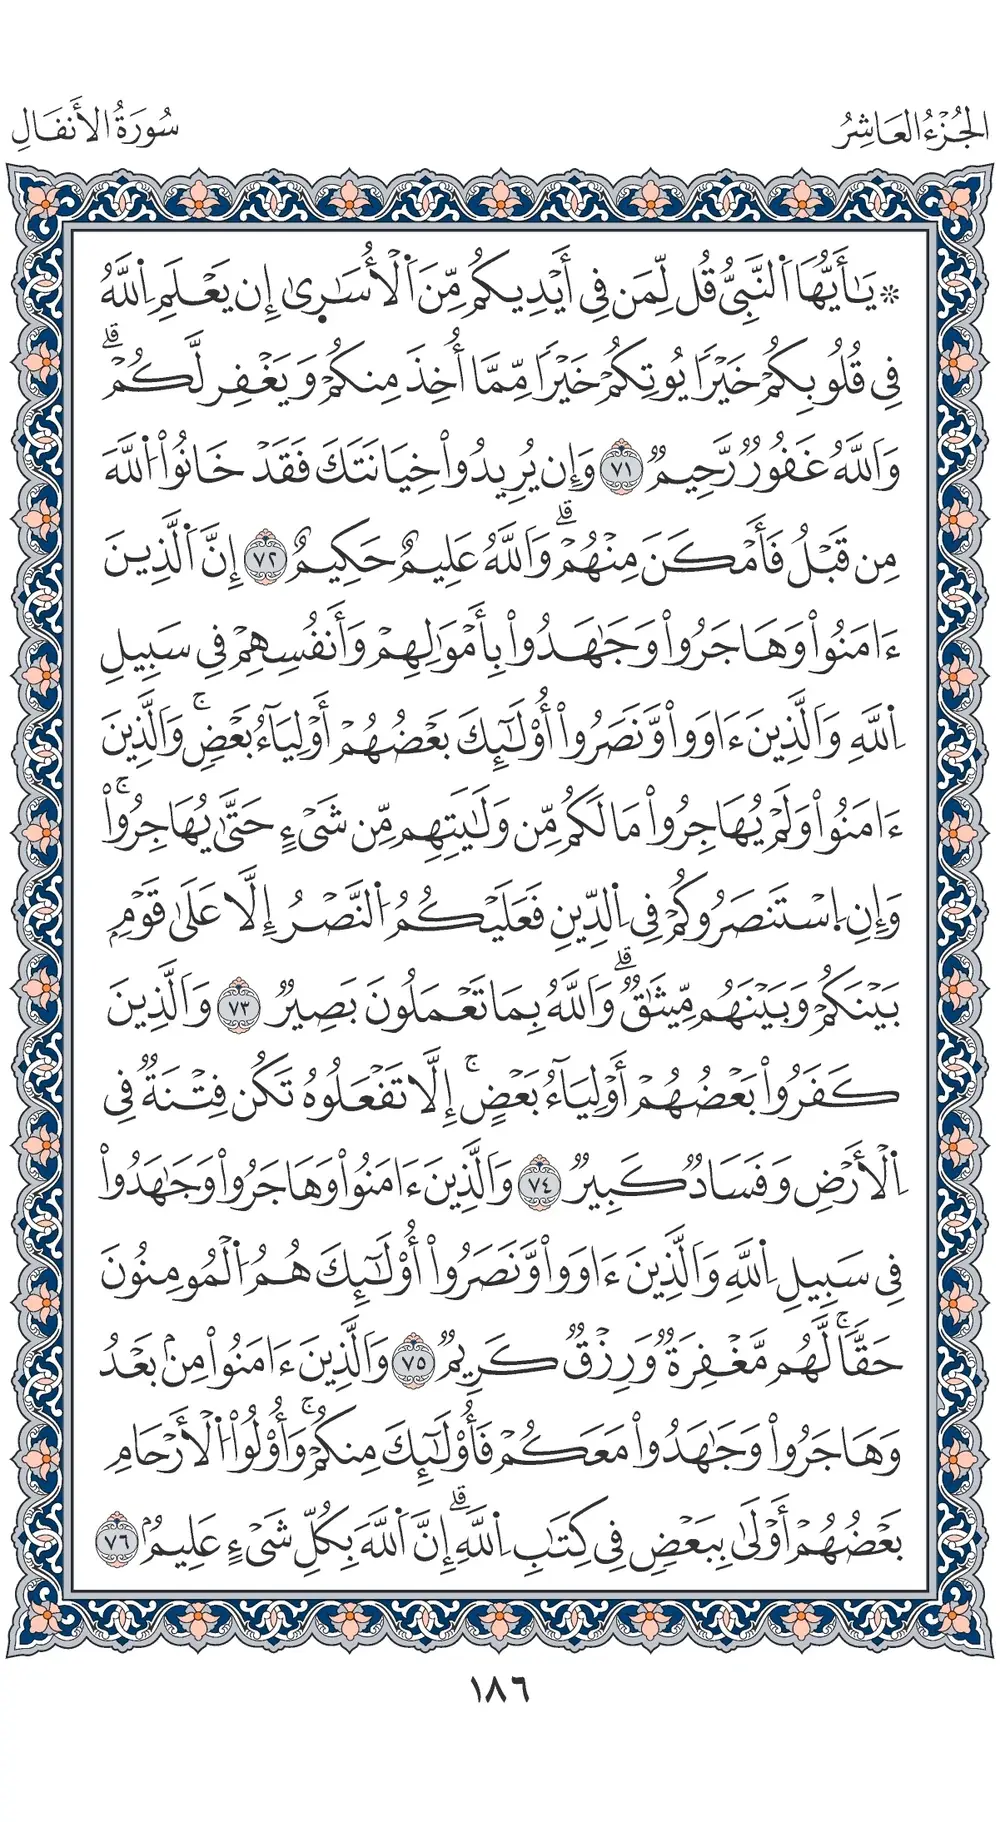 الجُزْءُ العَاشِرُ
سُورَةُ الأَنفَالِ
۞ يَٰٓأَيُّهَا اَ۬لنَّبِيُّ قُل لِّمَن فِي أَيْدِيكُم مِّنَ اَ۬لْأُسَٰر۪يٰ إِن يَعْلَمِ اِ۬للَّهُ
فِي قُلُوبِكُمْ خَيْرٗا يُوتِكُمْ خَيْرٗا مِّمَّا أُخِذَ مِنكُمْ وَيَغْفِر لَّكُمْۗ
وَاَللَّهُ غَفُورٞ رَّحِيمٞ ٧١ وَإِن يُرِيدُواْ خِيَانَتَكَ فَقَدْ خَانُواْ اُ۬للَّهَ
مِن قَبْلُ فَأَمْكَنَ مِنْهُمْۗ وَاَللَّهُ عَلِيمٌ حَكِيمٌ ٧٢ إِنَّ اَ۬لَّذِينَ
ءَامَنُواْ وَهَاجَرُواْ وَجَٰهَدُواْ بِأَمْوَٰلِهِمْ وَأَنفُسِهِمْ فِي سَبِيلِ
اِ۬للَّهِ وَاَلَّذِينَ ءَاوَواْ وَّنَصَرُواْ أُوْلَٰٓئِكَ بَعْضُهُمْ أَوْلِيَآءُ بَعْضٖۚ وَاَلَّذِينَ
ءَامَنُواْ وَلَمْ يُهَاجِرُواْ مَا لَكُم مِّن وَلَٰيَتِهِم مِّن شَيْءٍ حَتَّىٰ يُهَاجِرُواْۚ
وَإِنِ اِ۪سْتَنصَرُوكُمْ فِي اِ۬لدِّينِ فَعَلَيْكُمُ اُ۬لنَّصْرُ إِلَّا عَلَىٰ قَوْمِۭ
بَيْنَكُمْ وَبَيْنَهُم مِّيثَٰقٞۗ وَاَللَّهُ بِمَا تَعْمَلُونَ بَصِيرٞ ٧٣ وَاَلَّذِينَ
كَفَرُواْ بَعْضُهُمْ أَوْلِيَآءُ بَعْضٍۚ إِلَّا تَفْعَلُوهُ تَكُن فِتْنَةٞ فِي
اِ۬لْأَرْضِ وَفَسَادٞ كَبِيرٞ ٧٤ وَاَلَّذِينَ ءَامَنُواْ وَهَاجَرُواْ وَجَٰهَدُواْ
فِي سَبِيلِ اِ۬للَّهِ وَاَلَّذِينَ ءَاوَواْ وَّنَصَرُواْ أُوْلَٰٓئِكَ هُمُ اُ۬لْمُومِنُونَ
حَقّٗاۚ لَّهُم مَّغْفِرَةٞ وَرِزْقٞ كَرِيمٞ ٧٥ وَاَلَّذِينَ ءَامَنُواْ مِنۢ بَعْدُ
وَهَاجَرُواْ وَجَٰهَدُواْ مَعَكُمْ فَأُوْلَٰٓئِكَ مِنكُمْۚ وَأُوْلُواْ اُ۬لْأَرْحَامِ
بَعْضُهُمْ أَوْلَىٰ بِبَعْضٖ فِي كِتَٰبِ اِ۬للَّهِۗ إِنَّ اَ۬للَّهَ بِكُلِّ شَيْءٍ عَلِيمُۢ ٧٦
١٨٦